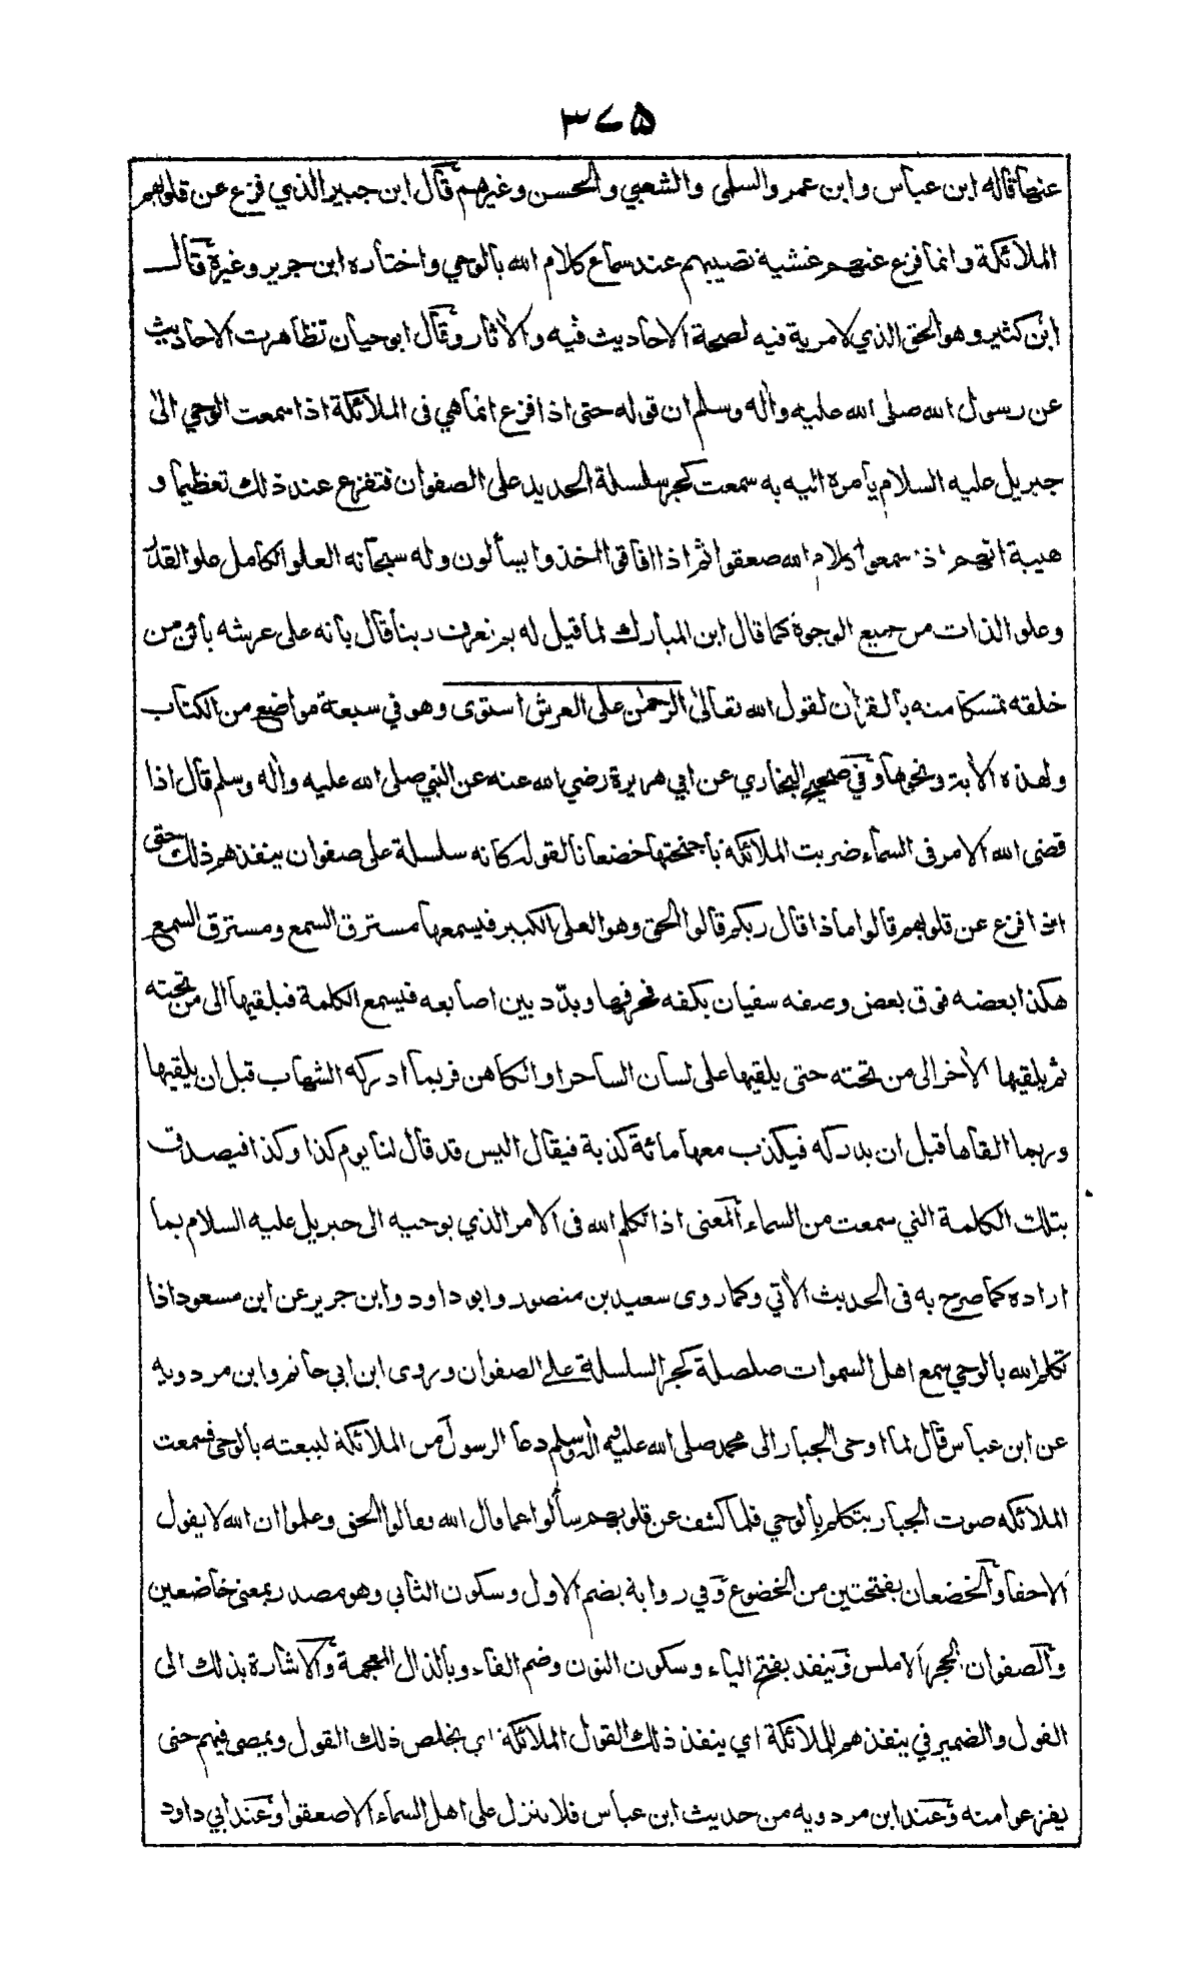 ٣٧٥
عنها قاله ابن عباس وابن عمر والسلمى والشعبي والحسن وغيرهم قال ابن جبير الذي فزع عن قلوبهم
الملائكة وانما فزع عنهم غشية تصيبهم عند سماع كلام الله بالوحي واختاره ابن جرير وغيره قال
ابن كثير وهو الحق الذي لا مرية فيه لصحة الاحاديث فيه والأثار وقال ابو حيان تظاهرت الاحاديث
عن رسول الله صلى الله عليه وأله وسلم ان قوله حتى اذا فزع انما هي فى الملائكة اذا سمعت الوحي الى
جبريل عليه السلام يأمره الله به سمعت كجر سلسلة الحديد على الصفوان فتفزع عند ذلك تعظيما و
هيبة انهم اذا سمعوا كلام الله صعقوا ثم اذا افاقوا اخذوا يسألون وله سبحانه العلو الكامل علو القدر
وعلو الذات من جميع الوجوه كما قال ابن المبارك لما قيل له بم نعرف ربنا قال بانه على عرشه بائن من
خلقه تمسكا منه بالقرأن لقول الله تعالى الرحمن على العرش استوى وهو في سبعة مواضع من الكتاب
ولهذه الأية ونحوها وفي صحيح البخاري عن ابي هريرة رضي الله عنه عن النبي صلى الله عليه وأله وسلم قال اذا
قضى الله الامر فى السماء ضربت الملائكة باجنحتها خضعانا لقوله كانه سلسلة على صفوان ينفذهم ذلك حتى
اذا فزع عن قلوبهم قالوا ماذا قال ربكم قالوا الحق وهو العلى الكبير فيسمعها مسترق السمع ومسترق السمع
هكذا بعضه فوق بعض وصفه سفيان بكفه فحرفها وبدّد بين اصابعه فيسمع الكلمة فيلقيها الى من تحته
ثم يلقيها الأخر الى من تحته حتى يلقيها على لسان الساحر او الكاهن فربما ادركه الشهاب قبل ان يلقيها
وربما القاها قبل ان يدركه فيكذب معها مائة كذبة فيقال اليس قد قال لنا يوم كذا وكذا فيصدق
بتلك الكلمة التي سمعت من السماء المعنى اذا تكلم الله فى الامر الذي يوحيه الى جبريل عليه السلام بما
اراده كما صرح به فى الحديث الأتي وكما روى سعيد بن منصور وابو داود وابن جرير عن ابن مسعود اذا
تكلم الله بالوحي سمع اهل السموات صلصلة كجر السلسلة على الصفوان وروى ابن ابي حاتم وابن مردويه
عن ابن عباس قال لما اوحى الجبار الى محمد صلى الله عليه وأله وسلم دعا الرسول من الملائكة ليبعثه بالوحي فسمعت
الملائكة صوت الجبار يتكلم بالوحي فلما كشف عن قلوبهم سألوا عما قال الله وقالوا الحق وعلموا ان الله لا يقول
الا حقا والخضعان بفتحتين من الخضوع وفي رواية بضم الاول وسكون الثاني وهو مصدر بمعنى خاضعين
والصفوان الحجر الاملس وينفذ بفتح الياء وسكون النون وضم الفاء وبالذال المعجمة والاشارة بذلك الى
القول والضمير في ينفذهم للملائكة اي ينفذ ذلك القول الملائكة اي يخلص ذلك القول ويمضى فيهم حتى
يفزعوا منه وعند ابن مردويه من حديث ابن عباس فلا ينزل على اهل السماء الا صعقوا وعند ابي داود